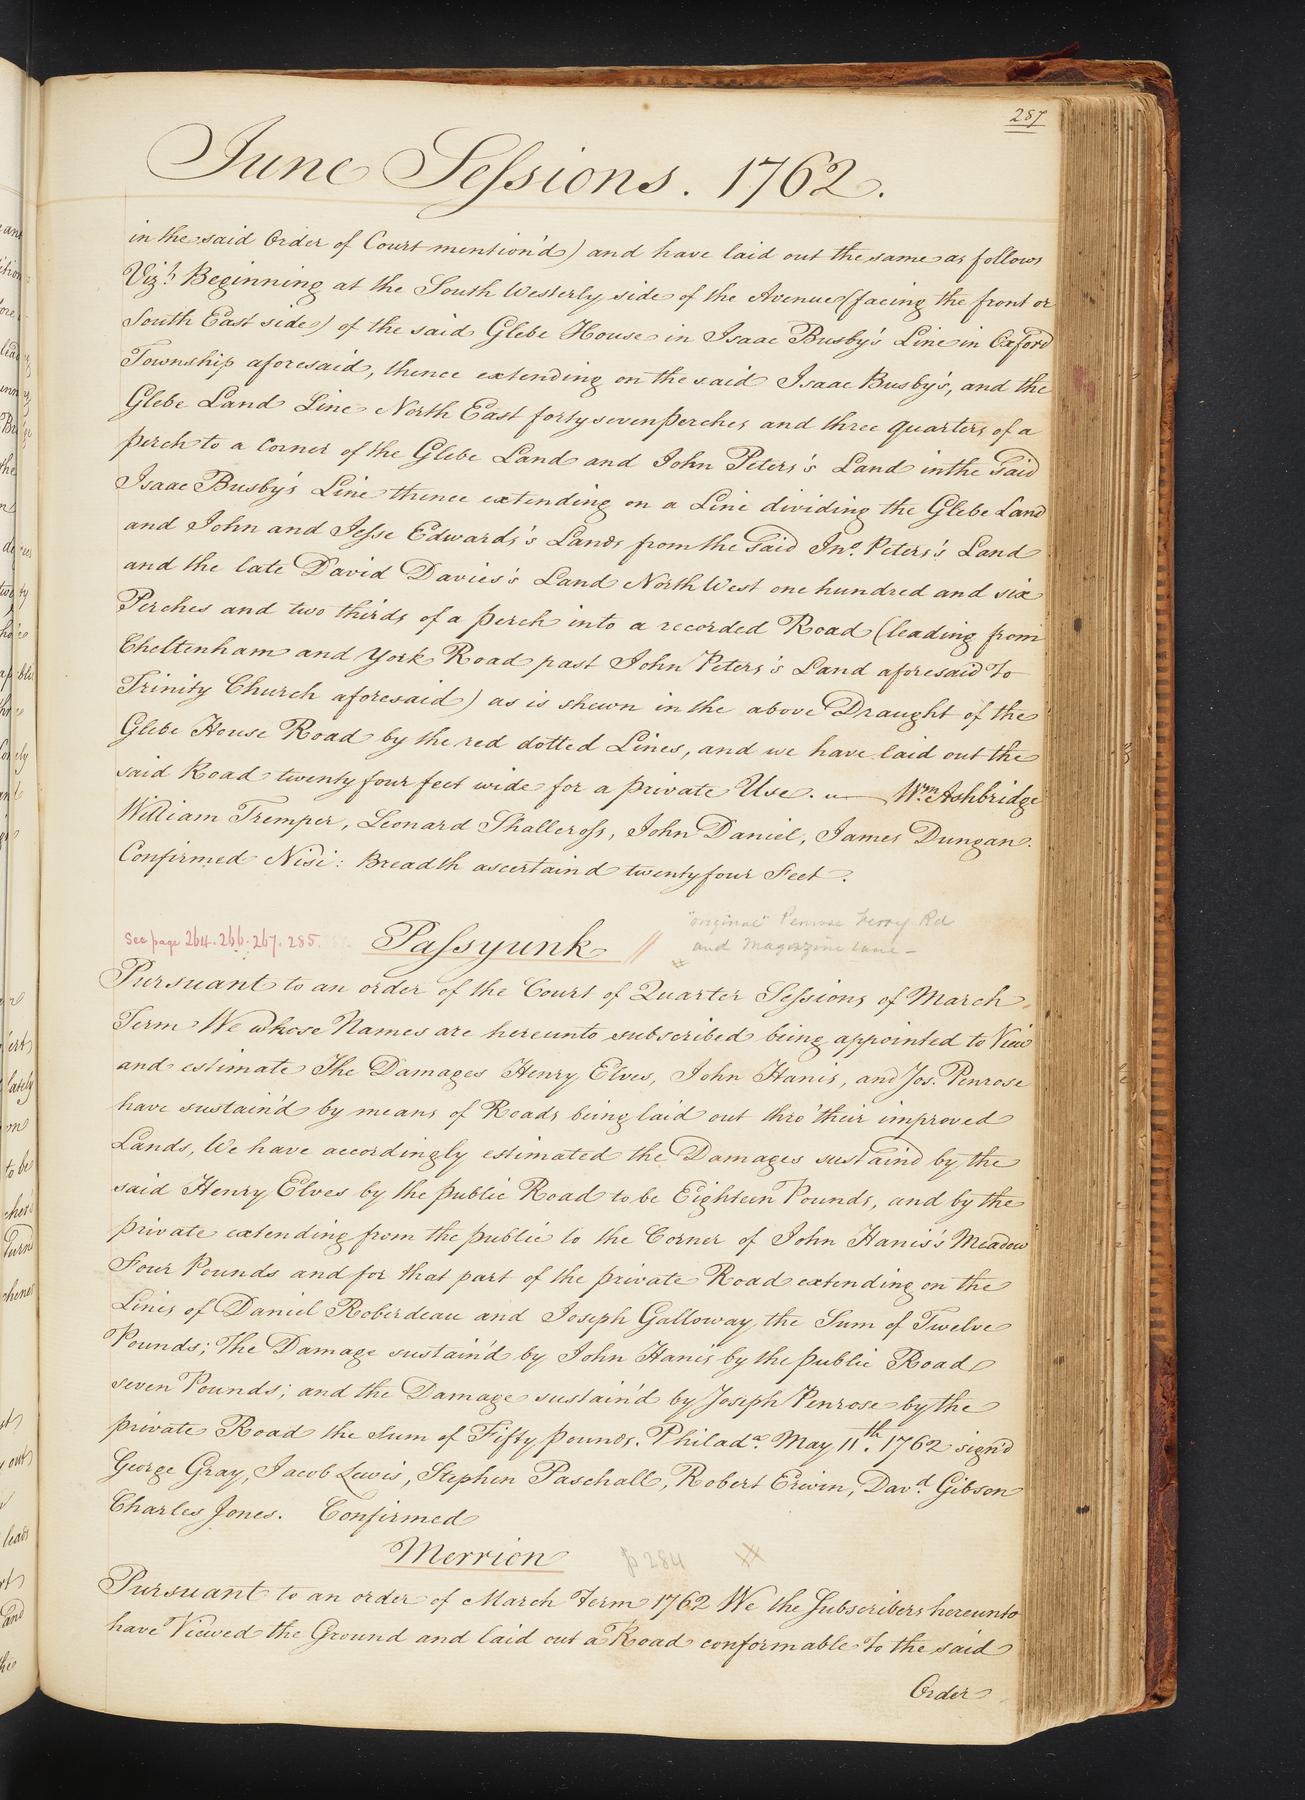 287
June Sessions. 1762.
in the said Order of Court mention'd) and have laid out the same as follows
Vizt. Beginning at the South Westerly side of the Avenue (facing the front or
South East side) of the said Glebe House in Isaac Busby's Line in Oxford
Township aforesaid, thence extending on the said Isaac Busby's, and the
Glebe Land Line North East forty seven perches and three quarters of a
perch to a corner of the Glebe Land and John Peters's Land in the said
Isaac Busby's Line thence extending on a Line dividing the Glebe Land
and John and Jesse Edwards's Lands from the said Jno. Peters's Land
and the late David Davies's Land North West one hundred and six
Perches and two thirds of a perch into a recorded Road (leading from
Cheltenham and York Road past John Peters's Land aforesaid to
Trinity Church aforesaid) as is shewn in the above Draught of the
Glebe House Road by the red dotted Lines, and we have laid out the
said Road twenty four feet wide for a private Use. — Wm. Ashbridge
William Tremper, Leonard Shallcross, John Daniel, James Dungan.
Confirmed Nisi: Breadth ascertaind twenty four Feet.
See page 264. 266. 267. 285.
Passyunk //
"original" Penrose Ferry Rd
and Magazine Lane —
Pursuant to an order of the Court of Quarter Sessions of March
Term We whose Names are hereunto subscribed being appointed to View
and estimate the Damages Henry Elves, John Hanis, and Jos. Penrose
have sustain'd by means of Roads being laid out thro' their improved
Lands, We have accordingly estimated the Damages sustaind by the
said Henry Elves by the public Road to be Eighteen Pounds, and by the
private extending from the public to the Corner of John Hanis's Meadow
Four Pounds and for that part of the private Road extending on the
Lines of Daniel Roberdeau and Joseph Galloway the Sum of Twelve
Pounds; The Damage sustain'd by John Hanis by the public Road
seven Pounds; and the Damage sustain'd by Joseph Penrose by the
private Road the Sum of Fifty pounds. Philada. May 11th. 1762 sign'd
George Gray, Jacob Lewis, Stephen Paschall, Robert Erwin, Davd. Gibson
Charles Jones. Confirmed
Merrion
p 284
Pursuant to an order of March Term 1762 We the Subscribers hereunto
have Viewed the Ground and laid out a Road conformable to the said
Order